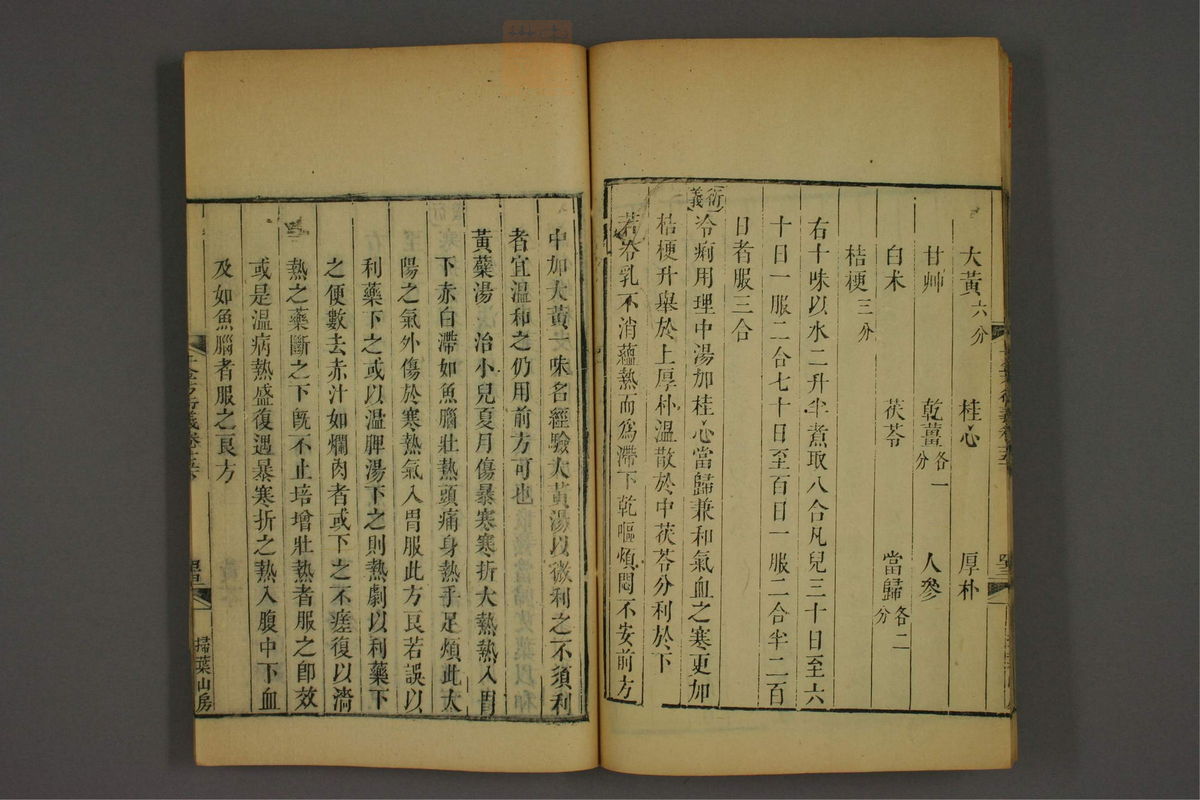 大黃六分 桂心 厚朴
甘艸 乾薑各一分 人參
白术 茯苓 當歸各二分
桔梗三分
右十味以水二升半煮取八合凡兒三十日至六
十日一服二合七十日至百日一服二合半二百
日者服三合
衍義冷痢用理中湯加桂心當歸兼和氣血之寒更加
桔梗升舉於上厚朴溫散於中茯苓分利於下
若冷乳不消蘊熱而爲滯下乾嘔煩悶不安前方
中加大黃一味名經驗大黃湯以微利之不須利
者宜溫和之仍用前方可也
黃蘗湯 治小兒夏月傷暴寒寒折大熱熱入胃
下赤白滯如魚腦壯熱頭痛身熱手足煩此太
陽之氣外傷於寒熱氣入胃服此方良若誤以
利藥下之或以溫脾湯下之則熱劇以利藥下
之便數去赤汁如爛肉者或下之不瘥復以濇
熱之藥斷之下旣不止培增壯熱者服之卽效
或是溫病熱盛復遇暴寒折之熱入腹中下血
及如魚腦者服之良方
掃葉山房